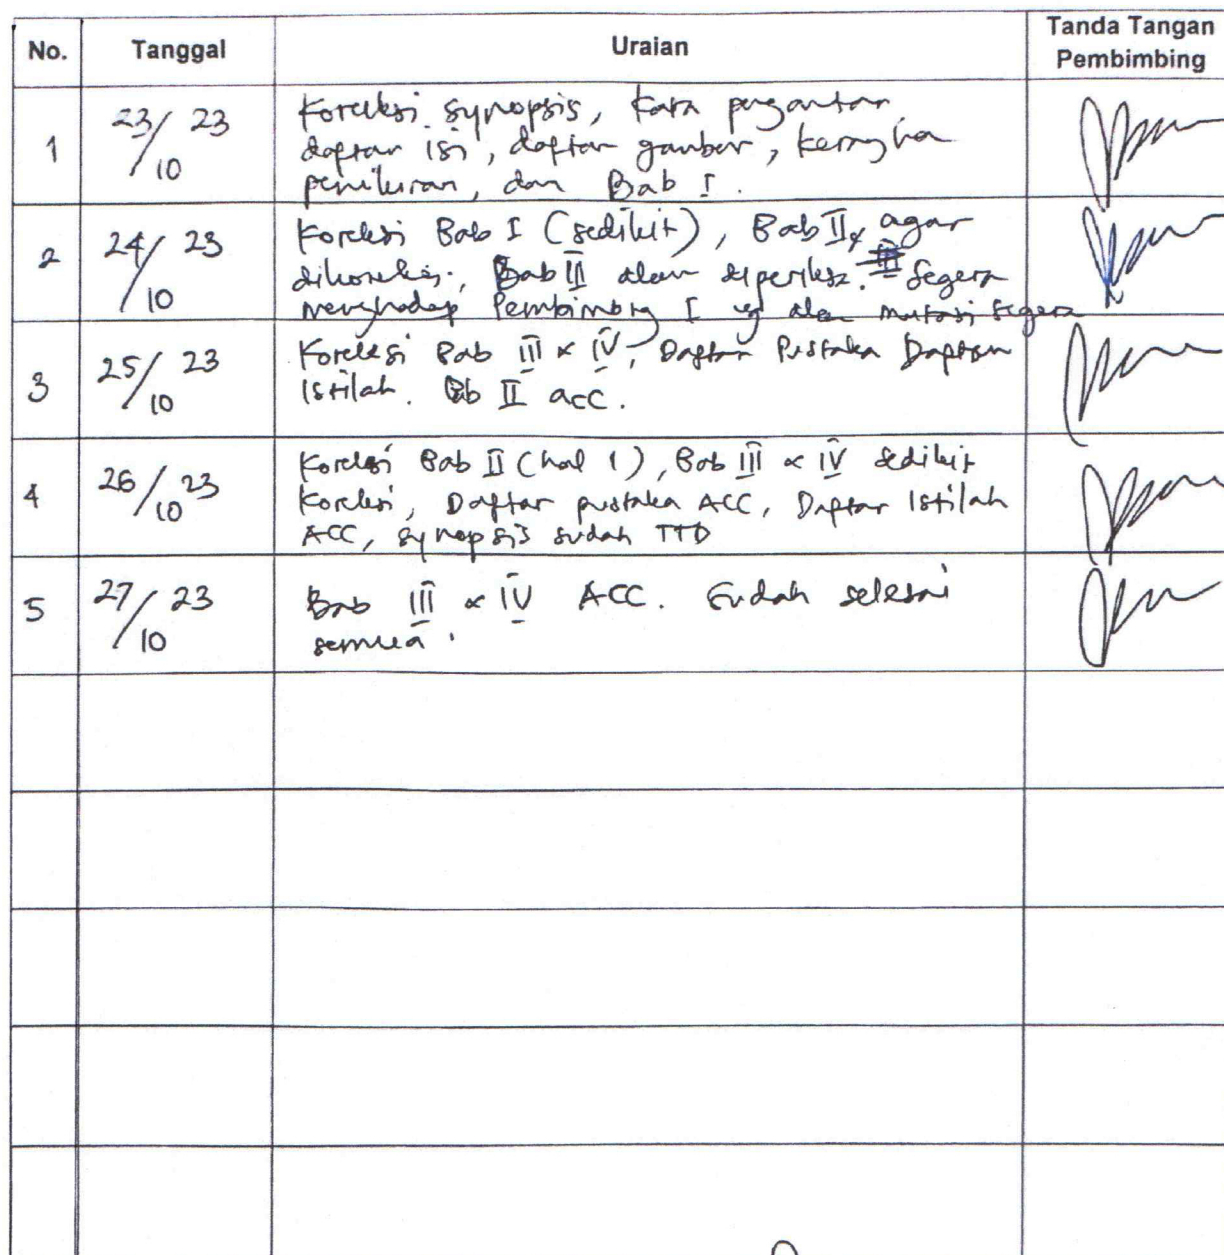 No. Tanggal Uraian Tanda Tangan
Pembimbing
1 23/10 23 Koreksi synopsis, kata pengantar
daftar isi, daftar gambar, kerangka
pemikiran, dan Bab I.
2 24/10 23 Koreksi Bab I (sedikit), Bab II, agar
dikoreksi. Bab II akan diperiksa. Segera
menghadap Pembimbing I yg akan mutasi segera
3 25/10 23 Koreksi Bab III & IV, Daftar Pustaka Daftar
Istilah. Bb II acc.
4 26/10 23 Koreksi Bab II (hal 1), Bab III & IV sedikit
Koreksi, Daftar pustaka ACC, Daftar Istilah
ACC, synopsis sudah TTD
5 27/10 23 Bab III & IV ACC. Sudah selesai
semua.